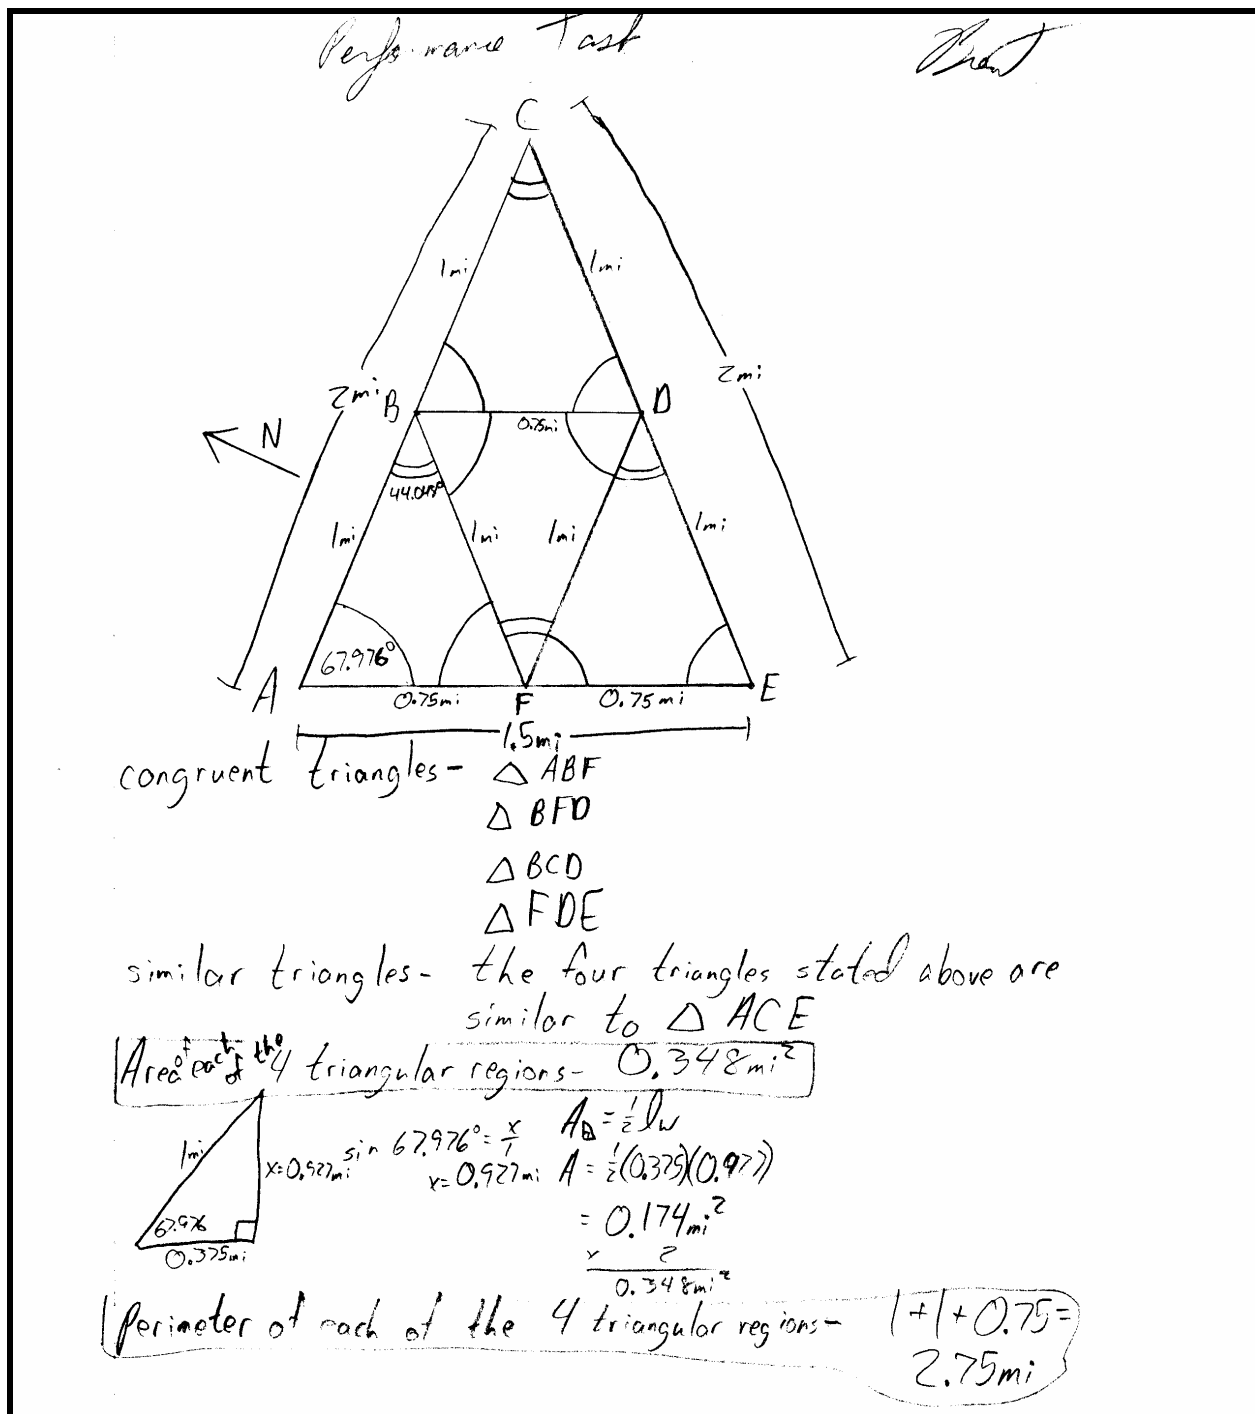 Performance Task
Brent
C
1mi
1mi
2mi
2mi
B
D
0.75mi
N
44.048°
1mi
1mi
1mi
1mi
67.976°
A
0.75mi
F
0.75mi
E
1.5mi
congruent triangles- △ ABF
△ BFD
△ BCD
△ FDE
similar triangles- the four triangles stated above are
similar to △ ACE
Area of each of the 4 triangular regions- 0.348mi²
1mi
x=0.927mi
67.976
0.375mi
sin 67.976°= x/1
x=0.927mi
A△=½lw
A=½(0.375)(0.927)
=0.174mi²
x 2
0.348mi²
Perimeter of each of the 4 triangular regions- 1+1+0.75=
2.75mi